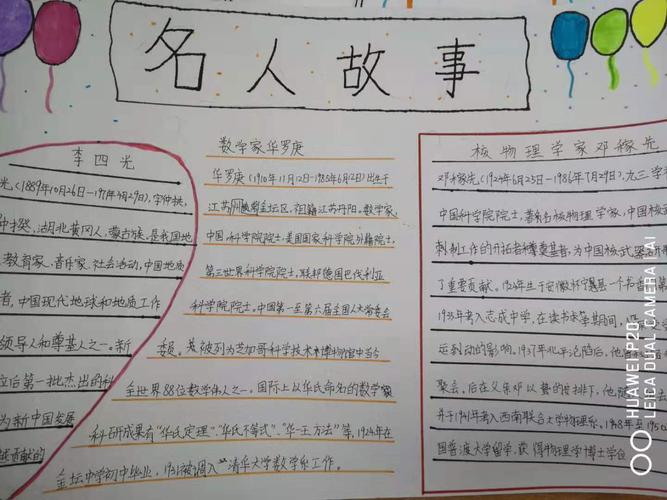 名人故事
李四光
光，(1889年10月26日-1971年4月29日)，字仲拱，
仲揆，湖北黄冈人，蒙古族，是我国地
教育家、音乐家、社会活动，中国地质
者，中国现代地球和地质工作
领导人和尊基人之一。新
立后第一批杰出的科
为新中国发展
贡献的
数学家华罗庚
华罗庚（1910年11月12日-1985年6月12日）出生于
江苏金坛区，祖籍江苏丹阳。数学家，
中国科学院院士，美国国家科学院外籍院士，
第三世界科学院院士，联邦德国巴伐利亚
科学院院士。中国第一至第六届全国人大常委会
委员。被列为芝加哥科学技术博物馆中当今
全世界88位数学伟人之一。国际上以华氏命名的数学
科研成果有“华氏定理”、“华氏不等式”、“华—王方法”等，1924年在
金坛中学初中毕业，1931被调入“清华大学数学系工作。
核物理学家邓稼先
邓稼先（1924年6月25日—1986年7月29日），九三学
中国科学院院士，著名核物理学家，中国核武
制工作的开拓者和尊基者，为中国核武器
了重要贡献。1924年生于安徽怀宁县一个书香
1935年考入志成中学，在读书求学期间，
运动的影响。1937年北平沦陷后，他
聚会，后在父亲安排下，他
并于1941年考入西南联合大学物理系。1948年至1950
国普渡大学留学，获得物理学博士学位
HUAWEI P20
LEICA DUAL CAMERA | AI